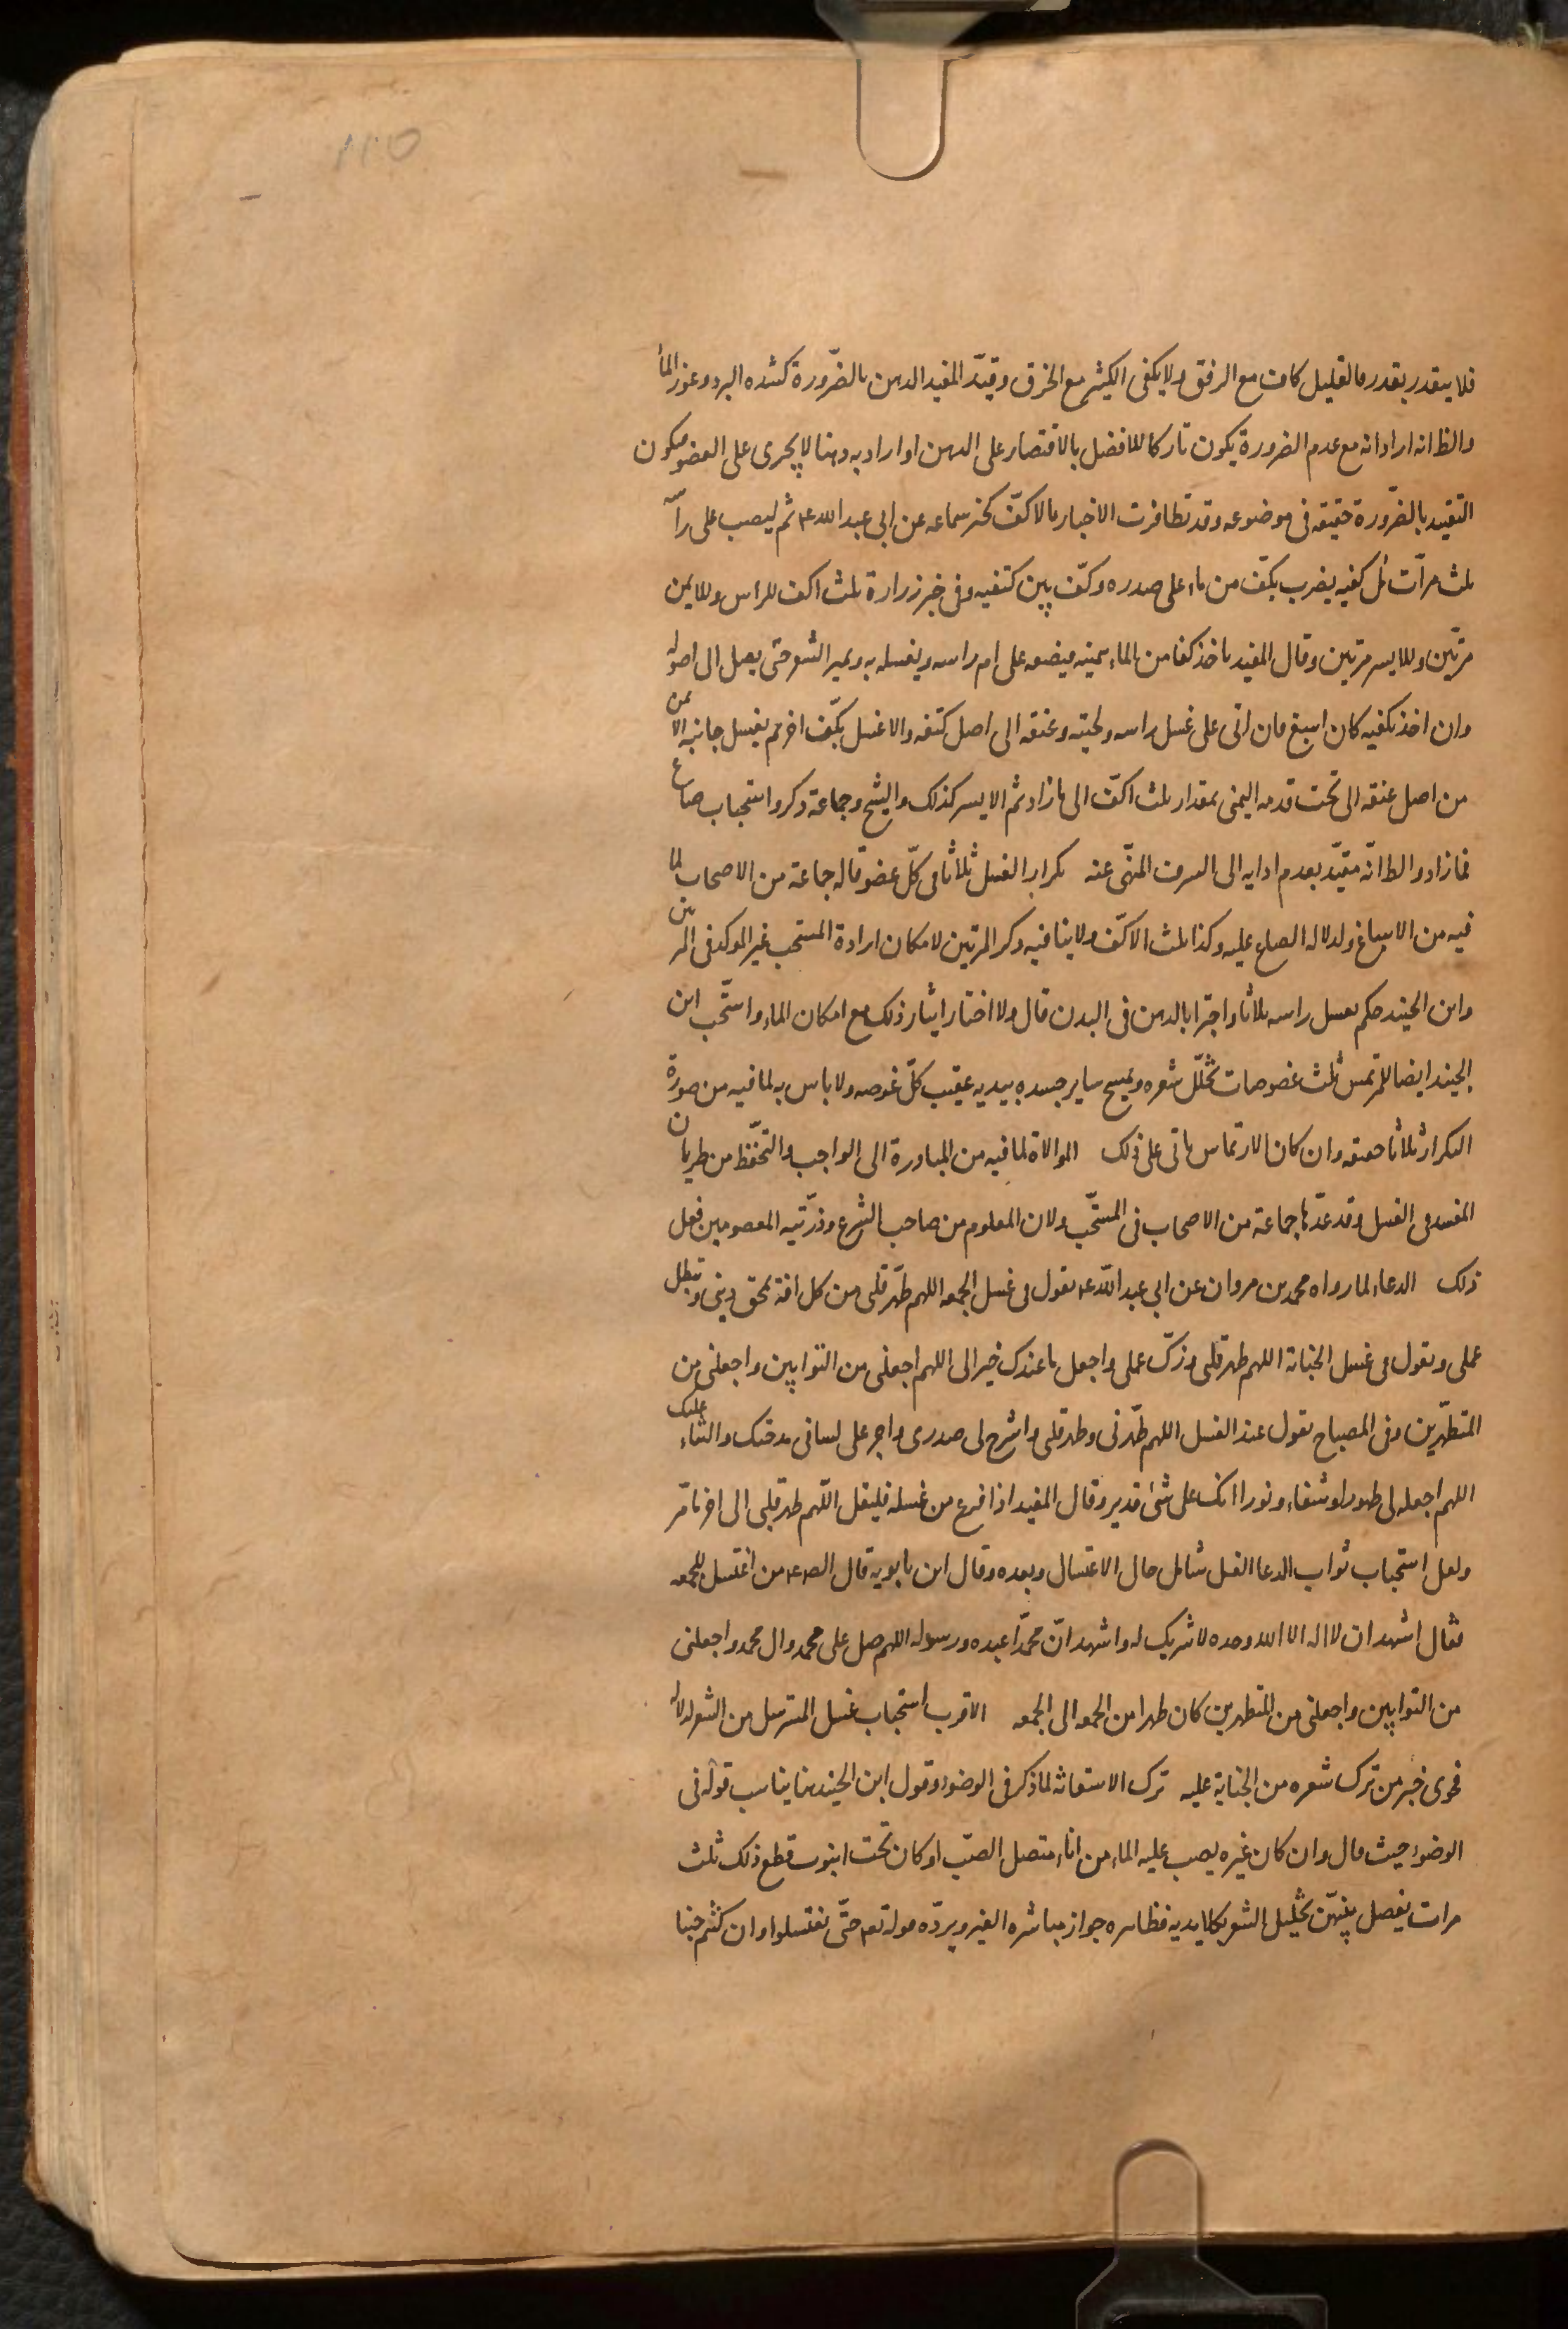 ١١٥
فلا يتقدر بقدر فالقليل كاف مع الرفق ولا يكفى الكثير مع الخرق وقيّد المفيد الدهن بالضّرورة كشده البرد وعوز الماء
والظ انه اراد انه مع عدم الضرورة يكون تاركا للافضل بالاقتصار على الدهن او اراد به دهنا لا يجرى على العضو فيكون
التقييد بالضّرورة حقيقه فى موضوعه وقد تظافرت الاخبار بالاكفّ كخبر سماعه عن ابى عبد الله ع ثم ليصب على رأسه
ثلث مرّات مل كفيه يضرب بكفّ من ماء على صدره وكفّ بين كتفيه وفى خبر زرارة ثلث اكف للراس وللايمن
مرتّين وللايسر مرتين وقال المفيد ياخذ كفا من الماء بيمينه فيضعه على ام راسه ويغسله به ويميز الشعر حتى يصل الى اصوله
وان اخذ بكفيه كان اسبغ فان اتى على غسل راسه ولحيته وعنقه الى اصل كتفه والا غسل بكفّ اخر ثم يغسل جانبه الايمن
من اصل عنقه الى تحت قدمه اليمنى بمقدار ثلث اكفّ الى ما زاد ثم الايسر كذلك والشيخ وجماعة ذكروا استحباب صاع
فما زاد والظ انّه مقيّد بعدم ادايه الى السرف المنهّى عنه تكرار الغسل ثلاثا فى كلّ عضو قاله جماعة من الاصحاب لما
فيه من الاسباغ ولدلاله الصاع عليه وكذا ثلث الاكفّ ولا ينافيه ذكر المرتين لامكان ارادة المستحب غير الموكد فى المرتين
وابن الجنيد حكم بغسل راسه ثلاثا واجتزا بالدهن فى البدن قال ولا اختار ايثار ذلك مع امكان الماء واستحّب ابن
الجنيد ايضا للمرتمس ثلث غصوصات تخلّل شعره ويمسح ساير جسده بيديه عقيب كلّ غوصه ولا باس به لما فيه من صورة
التكرار ثلاثا حقيقه وان كان الارتماس ياتى على ذلك الموالاة لما فيه من المبادرة الى الواجب والتحّفظ من طريان
المفسد فى الغسل وقد عدّها جماعة من الاصحاب فى المستحّب ولان المعلوم من صاحب الشرع وذرّتيه المعصومين فعل
ذلك الدعاء لما رواه محمد بن مروان عن ابى عبد اللّه ع تقول فى غسل الجمعه اللهم طهّر قلبى من كل افة تمحق دينى وتبطل
عملى وتقول فى غسل الجنابة اللهم طهر قلبى وزكّ عملى واجعل ما عندك خيرا لى اللهم اجعلنى من التوابين واجعلنى من
المتطهّرين وفى المصباح تقول عند الغسل اللهم طهّرنى وطهر قلبى واشرح لى صدرى واجر على لسانى مدحتك والثناء عليك
اللهم اجعله لى طهورا وشفاء ونورا انك على شئ قدير وقال المفيد اذا فرغ من غسله فليقل اللّهم طهر قلبى الى اخر ما مّر
ولعل استحباب ثواب الدعا الغسل شامل حال الاغتسال وبعده وقال ابن بابويه قال الص ع من اغتسل للجمعه
فقال اشهد ان لا اله الا الله وحده لا شريك له واشهد انّ محمّدا عبده ورسوله اللهم صل على محمد وال محمد واجعلنى
من التوابين واجعلنى من المتطهرين كان طهرا من الجمعه الى الجمعه الاقرب استحباب غسل المسترسل من الشعر لدلالة
فحوى خبر من ترك شعره من الجنابة عليه ترك الاستعانه لما ذكر فى الوضوء وقول ابن الجنيد هنا يناسب قوله فى
الوضوء حيث قال وان كان غيره يصب عليه الماء من اناء متصل الصّب او كان تحت انبوب قطع ذلك ثلث
مرات يفصل بينهّن بتخليل الشعر بكلا يديه فظاهره جواز مباشره الغير ويردّه قوله تع حتّى تغتسلوا وان كنتم جنبا